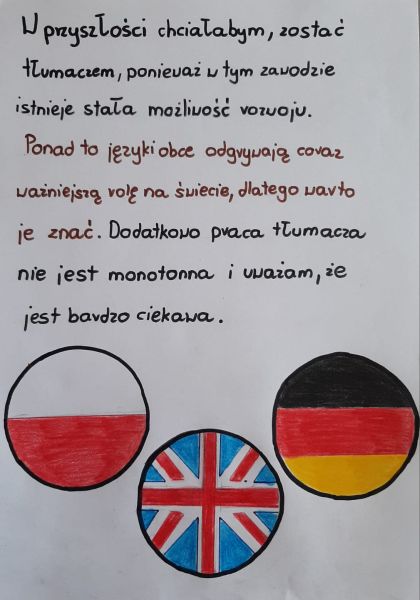 W przyszłości chciałabym, zostać
tłumaczem, ponieważ w tym zawodzie
istnieje stała możliwość rozwoju.
Ponad to języki obce odgrywają coraz
ważniejszą rolę na świecie, dlatego warto
je znać. Dodatkowo praca tłumacza
nie jest monotonna i uważam, że
jest bardzo ciekawa.